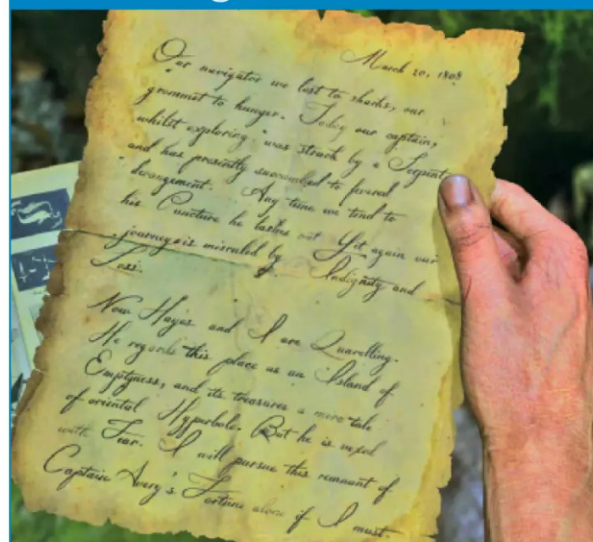 March 20, 1808
Our navigator we lost to sharks, our
grommet to hunger. Today our captain,
whilst exploring, was struck by a Serpent
and has presently succumbed to fevered
derangement. Any time we tend to
his Puncture he lashes out. Yet again our
journey is misruled by Indignity and
Loss.
Now Hayes and I are Quarelling.
He regards this place as an Island of
Emptyness, and its treasures a mere tale
of oriental Hyperbole. But he is vexed
with Fear. I will pursue this remnant of
Captain Avery's Fortune alone if I must.